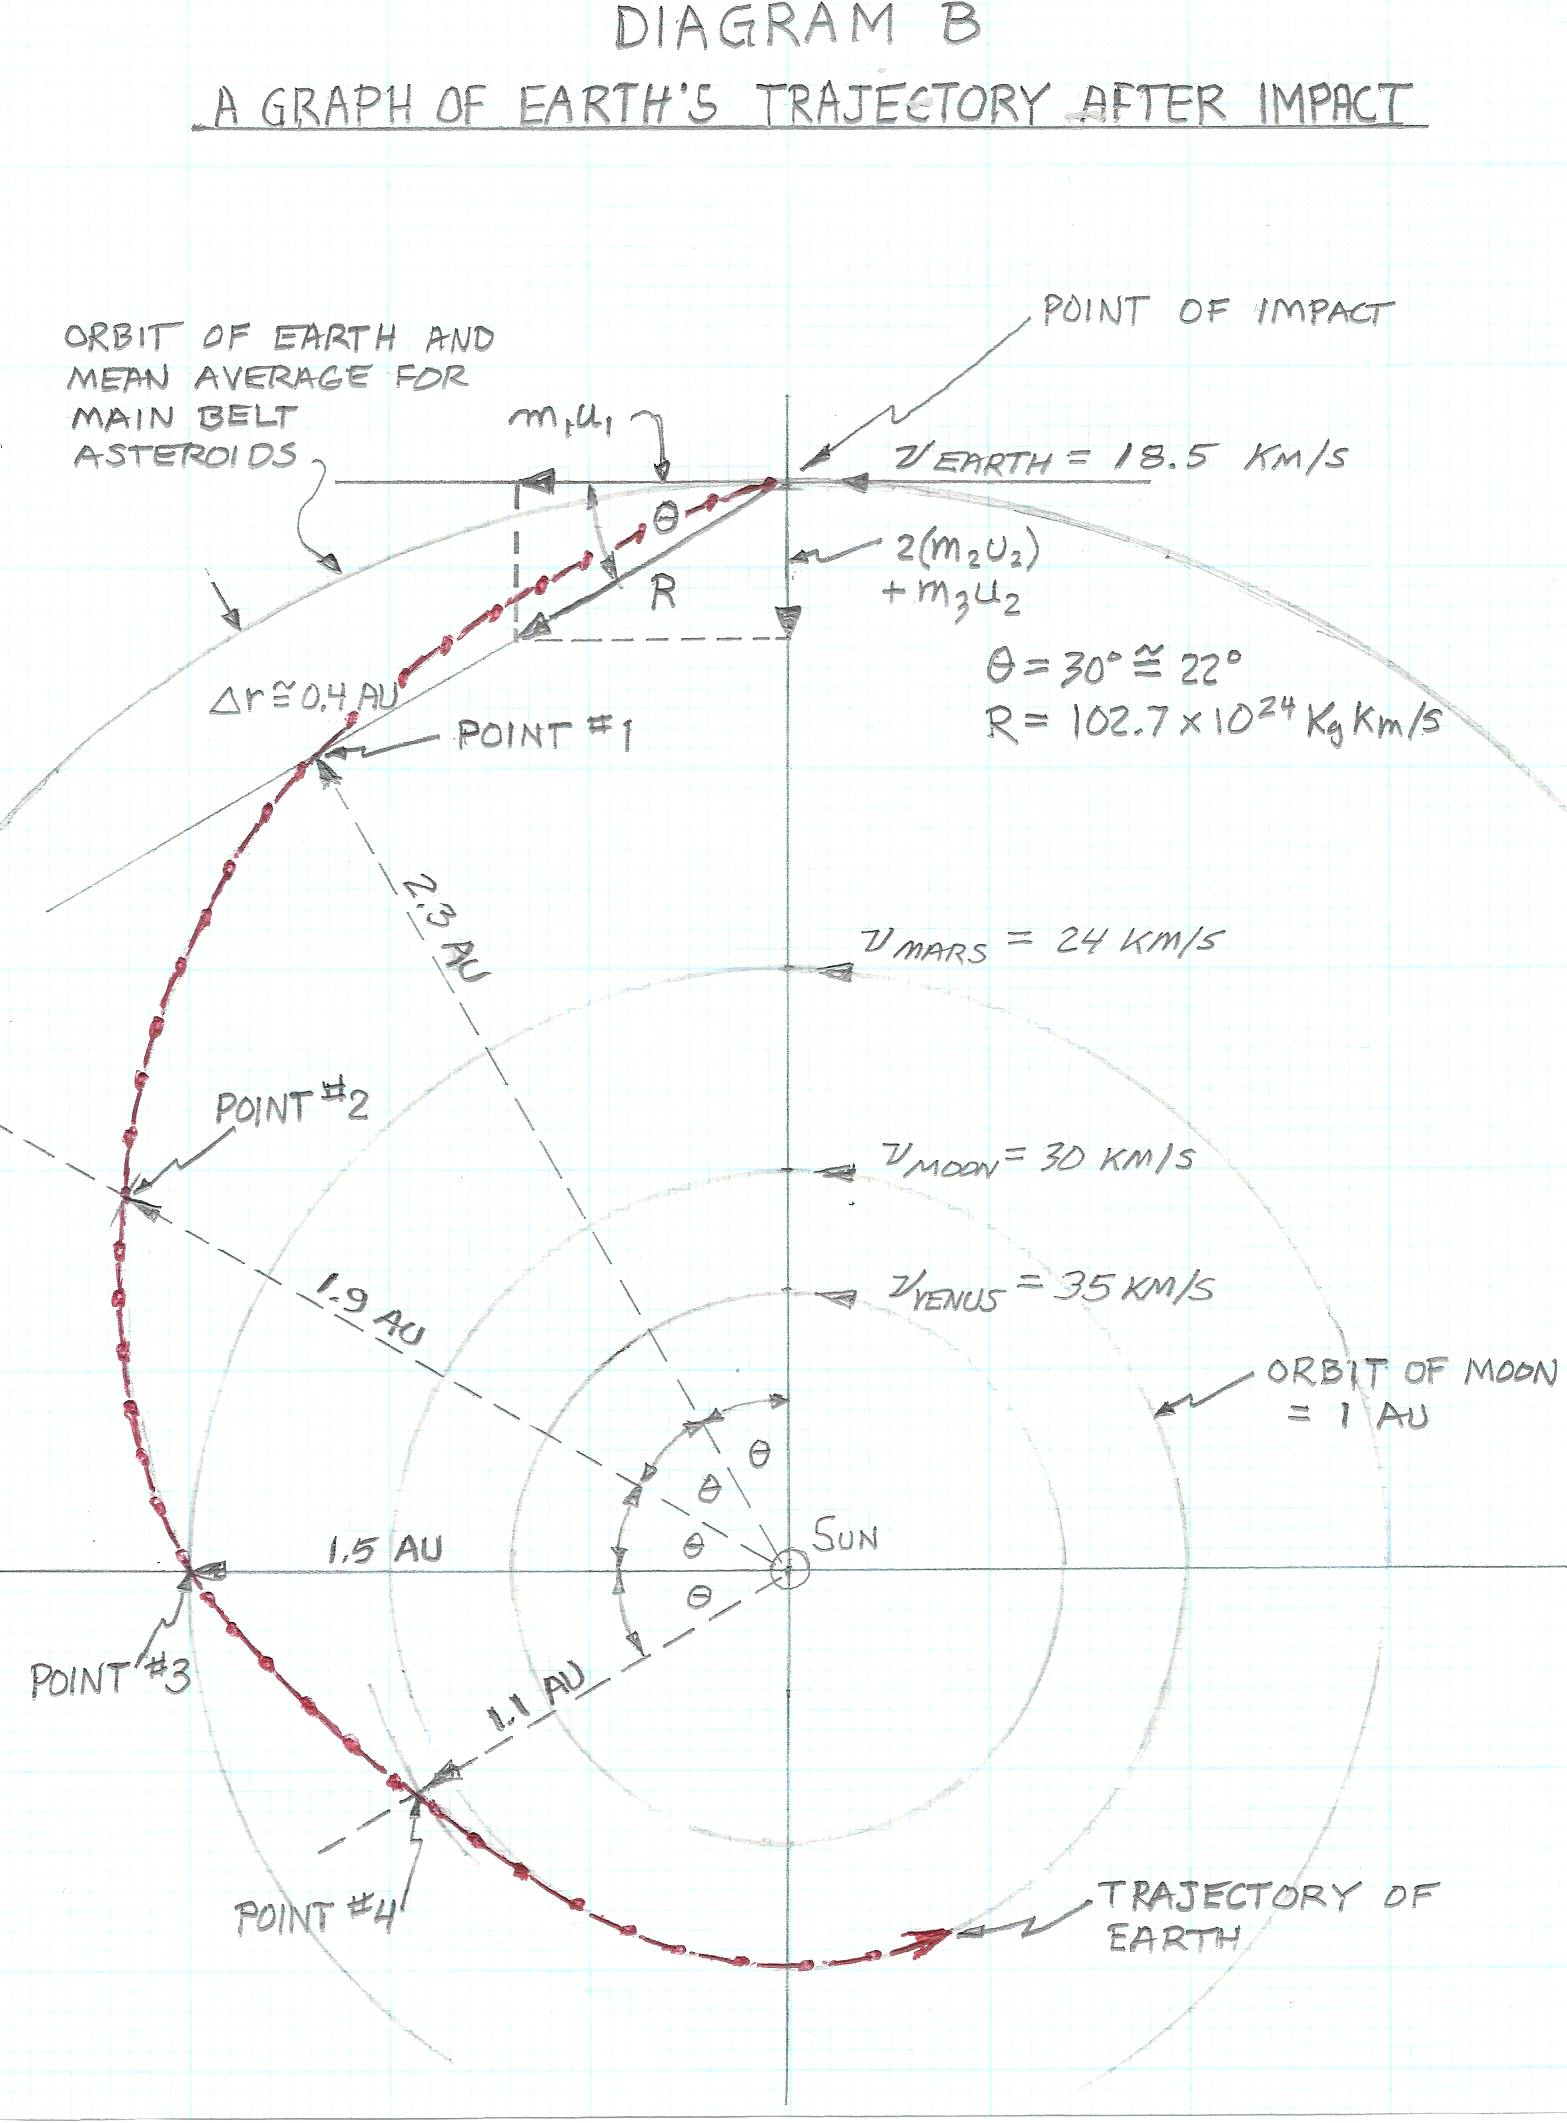 DIAGRAM B
A GRAPH OF EARTH'S TRAJECTORY AFTER IMPACT
POINT OF IMPACT
ORBIT OF EARTH AND
MEAN AVERAGE FOR
MAIN BELT
ASTEROIDS
m₁u₁
v EARTH = 18.5 KM/S
θ
R
2(m₂u₂)
+ m₃u₂
θ = 30° ≅ 22°
R = 102.7 × 10²⁴ Kg Km/s
Δr ≅ 0.4 AU
POINT #1
2.3 AU
v MARS = 24 KM/S
POINT #2
v MOON = 30 KM/S
1.9 AU
v VENUS = 35 KM/S
ORBIT OF MOON
= 1 AU
θ
θ
θ
θ
SUN
1.5 AU
POINT #3
1.1 AU
POINT #4
TRAJECTORY OF
EARTH